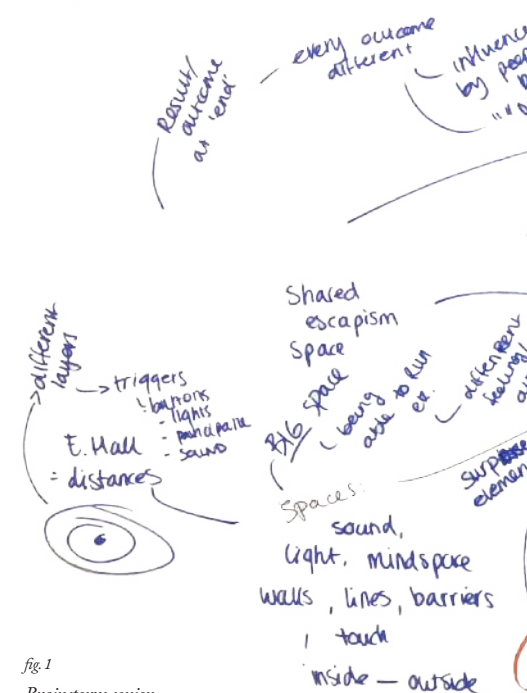 Result/
outcome
at 'end'
every outcome
different
influence
by
Shared
escapism
Space
different
layers
triggers
buttons
- lights
- participants
- sound
E. Hall
= distances
BIG space
being
able to run
etc.
different
feeling/
surprise
element
Spaces:
sound,
light, mindspace
walls, lines, barriers
touch
inside — outside
fig. 1